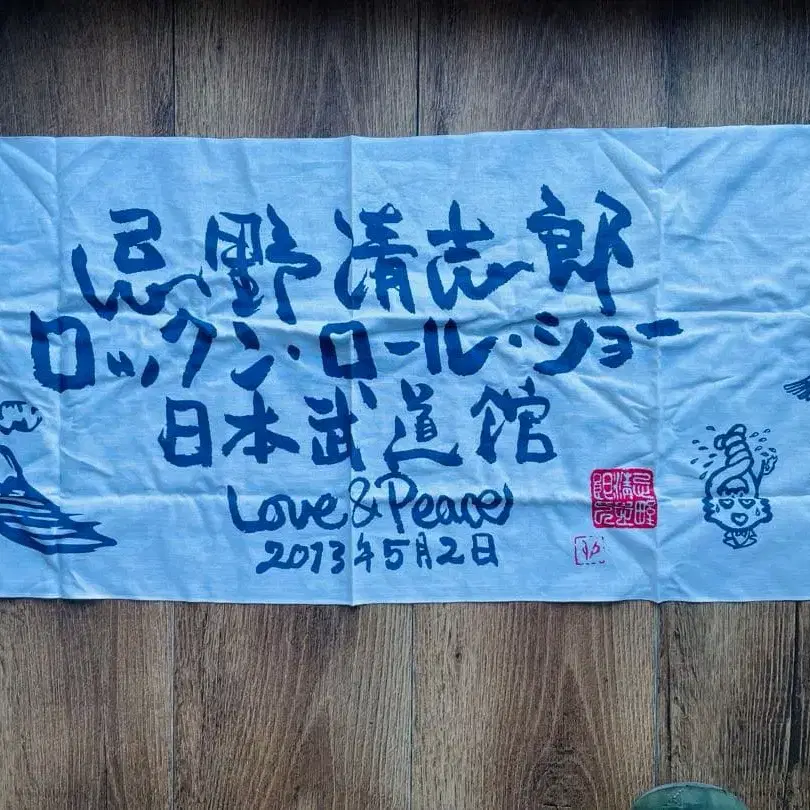 忌野清志郎
ロックン・ロール・ショー
日本武道館
Love&Peace
2013年5月2日